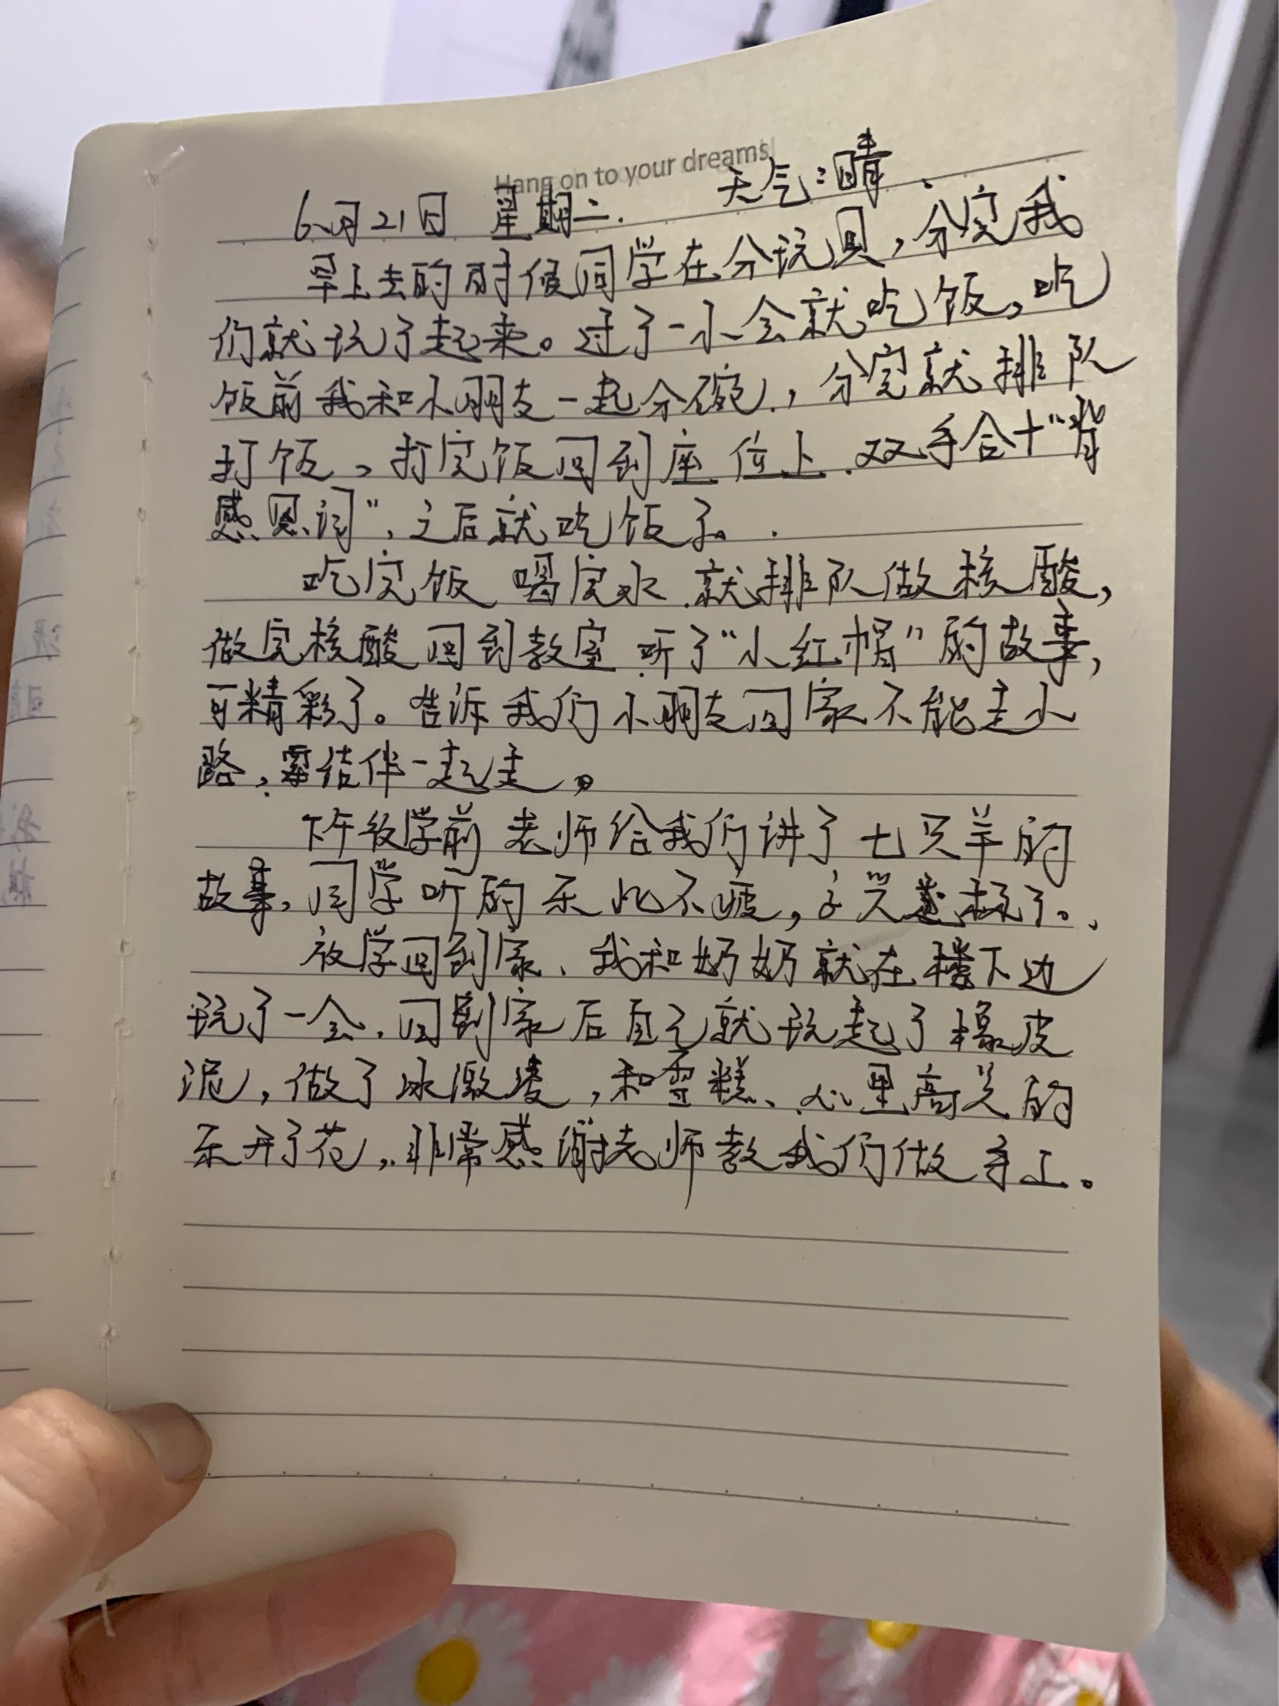 Hang on to your dreams
6月21日 星期二. 天气:晴
早上去的时候同学在分玩具,分完我
们就玩了起来。过了一小会就吃饭。吃
饭前我和小朋友一起分碗,分完就排队
打饭,打完饭回到座位上.双手合十"背
感恩词",之后就吃饭了。
吃完饭 喝完水.就排队做核酸,
做完核酸回到教室.听了"小红帽"的故事,
可精彩了。告诉我们小朋友回家不能走小
路,要结伴一起走。
下午放学前老师给我们讲了七只羊的
故事,同学听的乐此不疲,
放学回到家、我和奶奶就在楼下边
玩了一会.回到家后自己就玩起了橡皮
泥,做了冰激凌,和雪糕、心里高兴的
乐开了花,非常感谢老师教我们做手工。